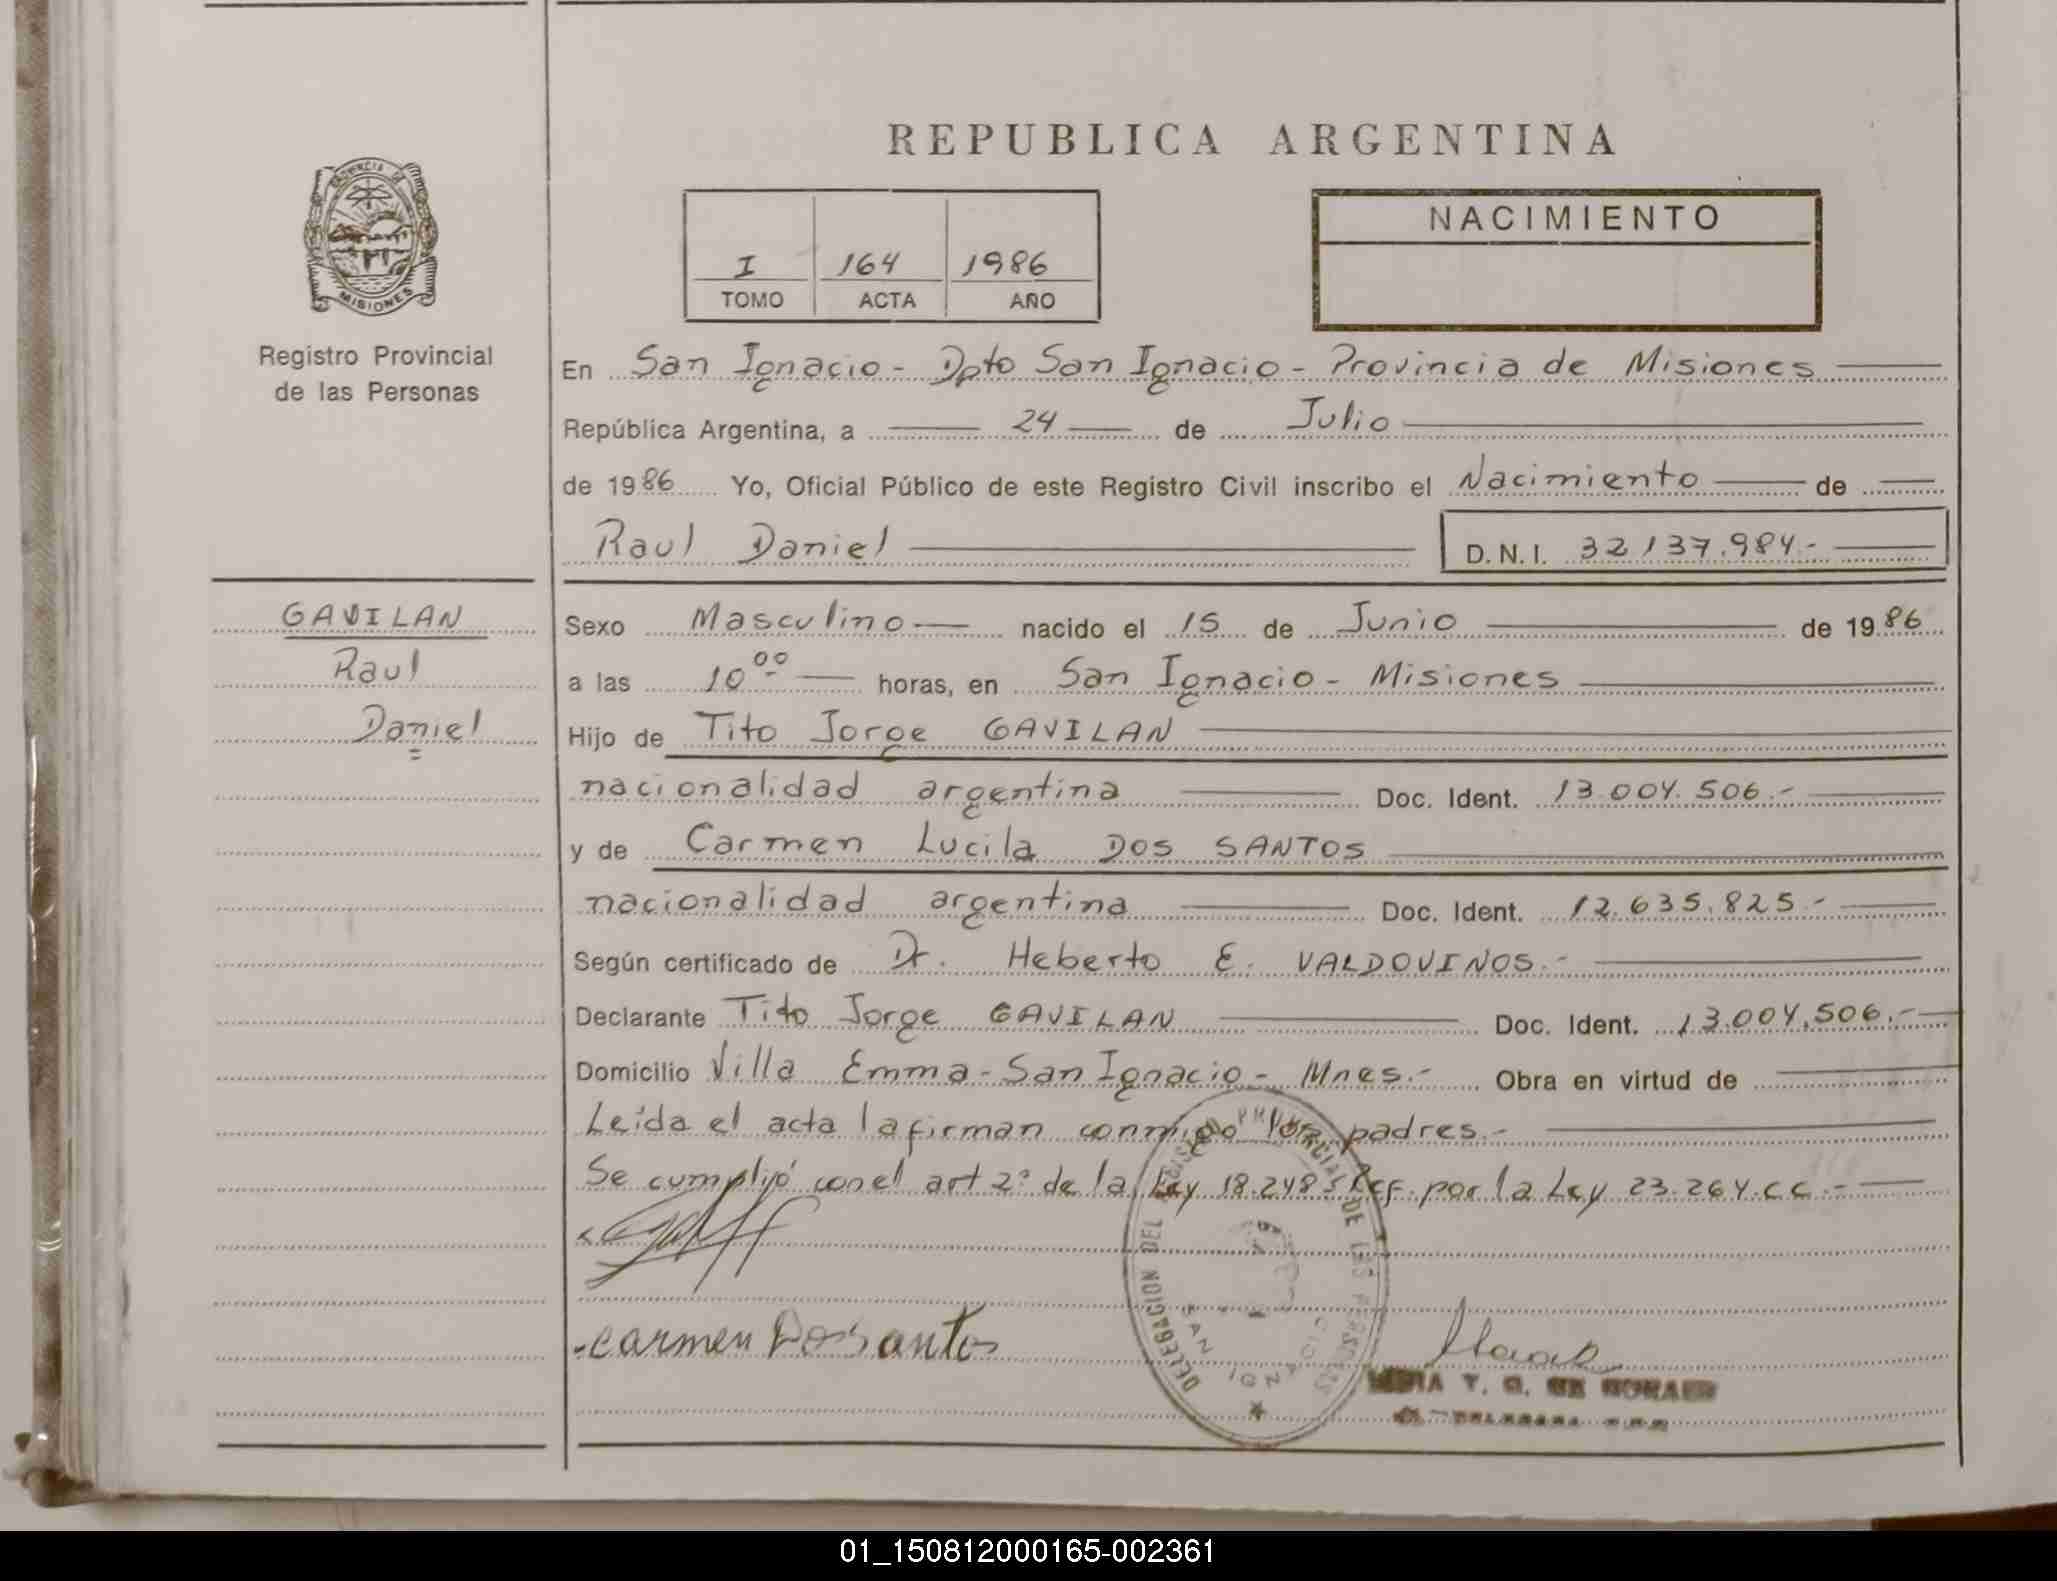 REPUBLICA ARGENTINA
PROVINCIA DE
MISIONES
Registro Provincial
de las Personas
I 164 1986
TOMO ACTA AÑO
NACIMIENTO
En San Ignacio - Dpto San Ignacio - Provincia de Misiones
República Argentina, a 24 de Julio
de 1986 Yo, Oficial Público de este Registro Civil inscribo el Nacimiento de
Raul Daniel D. N. I. 32137.984.-
GAVILAN
Raul
Daniel
Sexo Masculino nacido el 15 de Junio de 1986
a las 10 00 horas, en San Ignacio - Misiones
Hijo de Tito Jorge GAVILAN
nacionalidad argentina Doc. Ident. 13.004.506.-
y de Carmen Lucila DOS SANTOS
nacionalidad argentina Doc. Ident. 12.635.825.-
Según certificado de Dr. Heberto E. VALDOVINOS.-
Declarante Tito Jorge GAVILAN Doc. Ident. 13.004.506.-
Domicilio Villa Emma - San Ignacio - Mnes.- Obra en virtud de
Leída el acta la firman conmigo los padres.-
Se cumplió con el art 2° de la Ley 18.248 Ref. por la Ley 23.264.CC.-
Carmen Dos Santos
DELEGACION DEL REGISTRO PROVINCIAL DE LAS PERSONAS
SAN IGNACIO
01_150812000165-002361